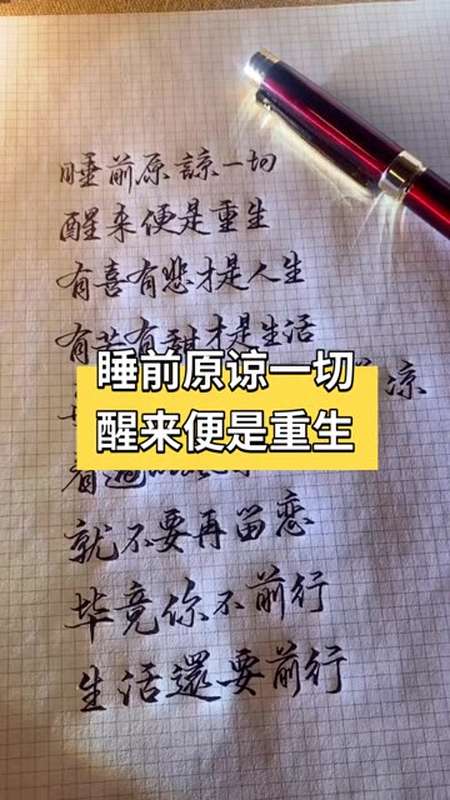 睡前原諒一切
醒来便是重生
有喜有悲才是人生
有苦有甜才是生活
睡前原谅一切
醒来便是重生
凉
看過
就不要再留恋
毕竟你不前行
生活還要前行